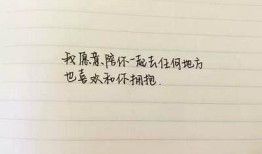 我愿意陪你一起去任何地方
也喜欢和你拥抱.